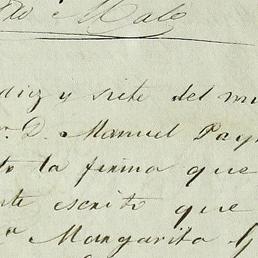 to Malo
diez y siete del mi
r. D. Manuel Pay
to la firma que
nte escrito que
a Margarita G